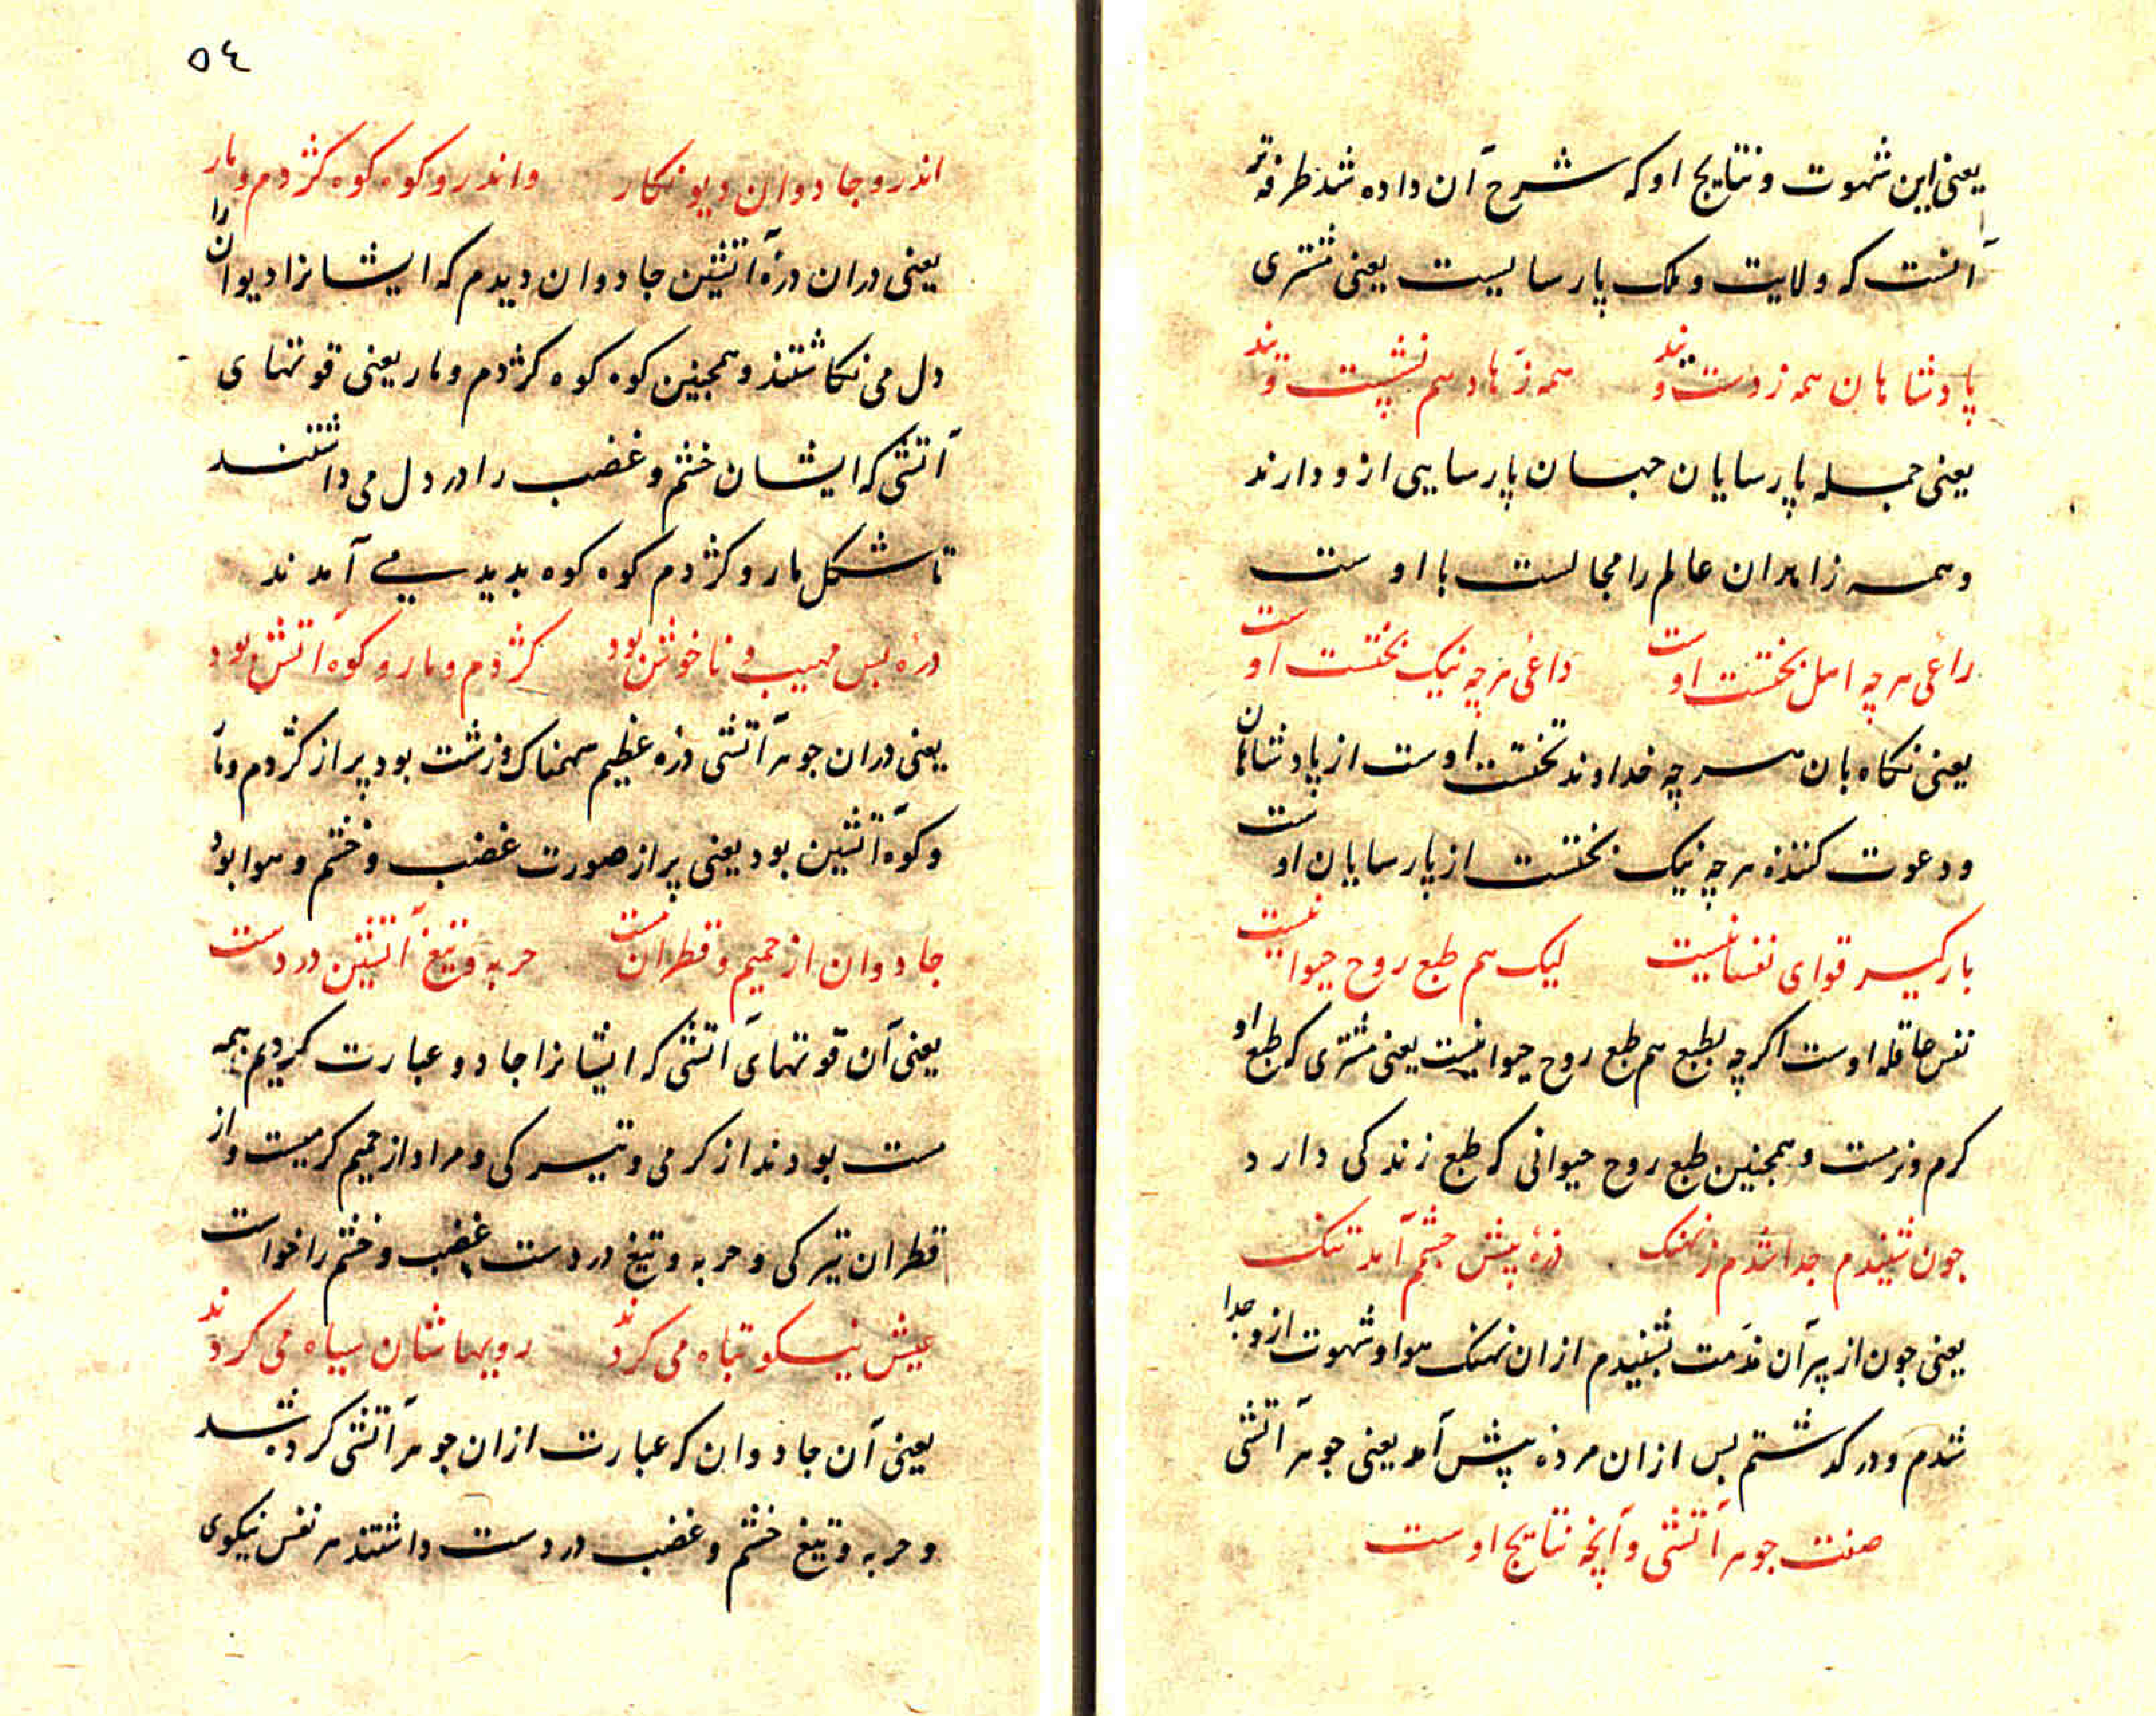 یعنی این شهوت و نتایج او که شرح آن داده شد طرفه تر
آنست که ولایت و ملک پارساییست یعنی مشتری
پادشاهان همه ز دست ویند همه زهاد هم نشست ویند
یعنی جمله پارسایان جهان پارسایی ازو دارند
و همه زاهدان عالم را مجالست با اوست
راعی هر چه اهل تختست اوست داعی هر چه نیک بختست اوست
یعنی نکاه بان هر چه خداوند تختست اوست از پادشاهان
و دعوت کننده هر چه نیک بختست از پارسایان اوست
بارکیر قوای نفسانیست لیک هم طبع روح حیوانیست
نفس عاقله اوست اکر چه بطبع هم طبع روح حیوانیست یعنی مشتری که طبع او
کرم و نرمست و همجنین طبع روح حیوانی که طبع زندکی دارد
جون شنیدم جدا شدم ز نهنک دره پیش جشم آمد تنک
یعنی جون از پیر آن مذمت بشنیدم ازان نهنک هوا و شهوت ازو جدا
شدم و در کذشتم بس ازان مر دره پیش آمد یعنی جوهر آتشی
صفت جوهر آتشی و آنجه نتایج اوست
٥٤
اندرو جادوان دیو نکار واندرو کوه کوه کژدم و مار
یعنی دران دره آتشین جادوان دیدم که ایشانرا دیوان را
دل می نکاشتند و همجنین کوه کوه کژدم و مار یعنی قوتهای
آتشی که ایشان خشم و غضب را در دل می داشتند
تا شکل مار و کژدم کوه کوه بدید می آمدند
دره بس مهیب و ناخوش بود کژدم و مار و کوه آتش بود
یعنی دران جوهر آتشی دره عظیم سهمناک و زشت بود پر از کژدم و مار
و کوه آتشین بود یعنی پر از صورت غضب و خشم و هوا بود
جادوان از حمیم و قطران مست حربه و تیغ آتشین در دست
یعنی آن قوتهای آتشی که ایشانرا جادو عبارت کردیم همه
مست بودند از کرمی و تیرکی و مراد از حمیم کرمیست و از
قطران تیرکی و حربه و تیغ در دست غضب و خشم را خواست
عیش نیکو تباه می کردند رویهاشان سیاه می کردند
یعنی آن جادوان که عبارت ازان جوهر آتشی کرده شد
و حربه و تیغ خشم و غضب در دست داشتند هر نفس نیکوی